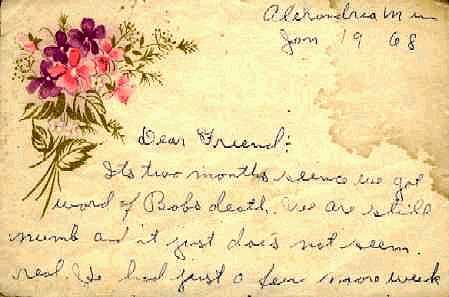 Alexandria Minn
Jan 19 68
Dear Friend:
Its two months seence we got
word of Bobs death. We are still
numb and it just does not seem
real. He had just a few more week